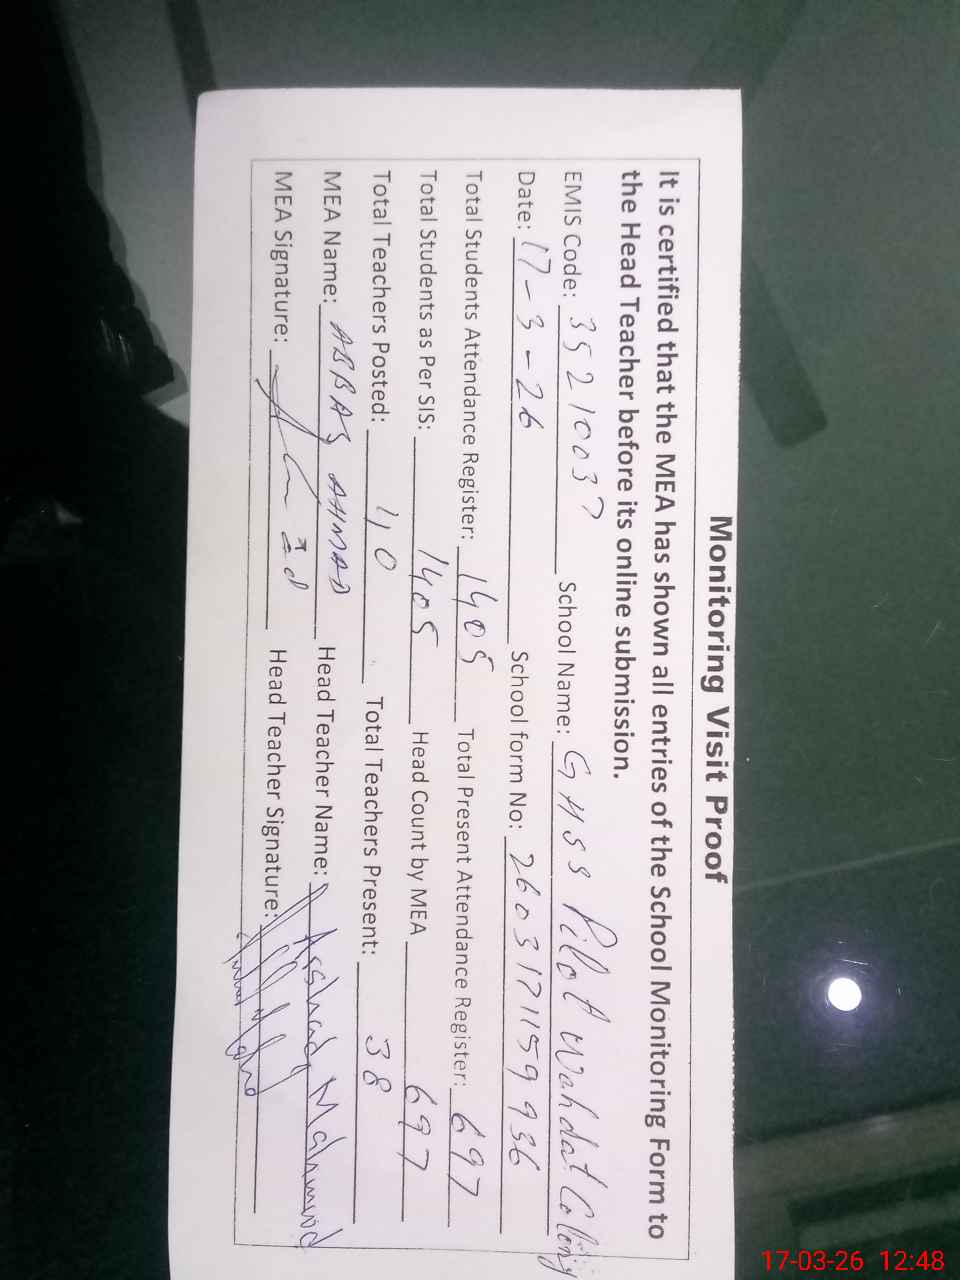 Monitoring Visit Proof
It is certified that the MEA has shown all entries of the School Monitoring Form to
the Head Teacher before its online submission.
EMIS Code: 35210037 School Name: GHSS Pilot Wahdat Colony
Date: 17-3-26 School form No: 2603171159936
Total Students Attendance Register: 1405 Total Present Attendance Register: 697
Total Students as Per SIS: 1405 Head Count by MEA 697
Total Teachers Posted: 40 Total Teachers Present: 38
MEA Name: ABBAS AHMAD Head Teacher Name: Mahmood
MEA Signature: Head Teacher Signature:
17-03-26 12:48